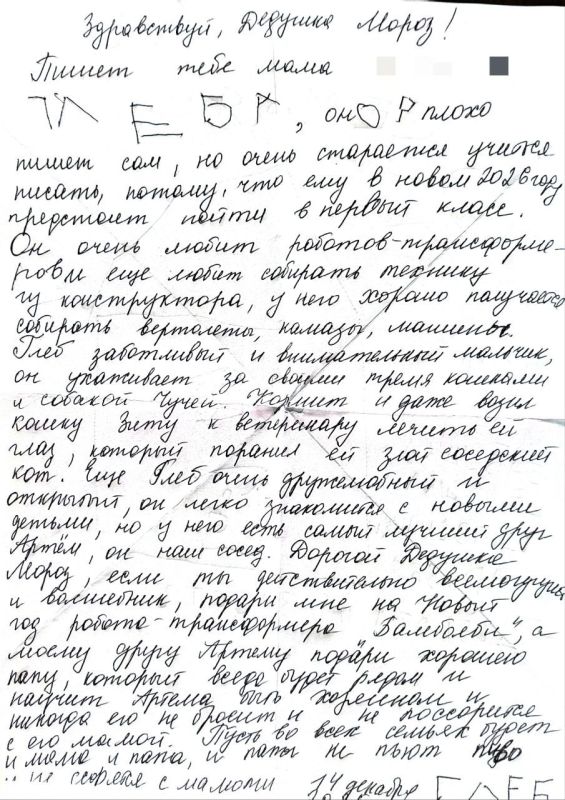 Здравствуй, Дедушка Мороз!
Пишет тебе мама
ГЛЕБА, он плохо
пишет сам, но очень старается учится
писать, потому, что ему в новом 2026 году
предстоит пойти в первый класс.
Он очень любит роботов-трансформе-
ров и еще любит собирать технику
из конструктора, у него хорошо получается
собирать вертолеты, камазы, машины.
Глеб заботливый и внимательный мальчик,
он ухаживает за своими тремя кошками
и собакой Чучей. Кормит и даже возил
кошку Зиту к ветеринару лечить ей
глаз, который поранил ей злой соседский
кот. Еще Глеб очень дружелюбный и
открытый, он легко знакомится с новыми
детьми, но у него есть самый лучший друг
Артём, он наш сосед. Дорогой Дедушка
Мороз, если ты действительно всемогущий
и волшебник, подари мне на Новый
год робота-трансформера Бамблби", а
моему другу Артему подари хорошего
папу, который всегда будет рядом и
научит Артема быть хоккеистом и
никогда его не бросит и не поссорится
с его мамой. Пусть во всех семьях будет
и мама и папа, и папы не пьют пиво
и не ссорятся с мамами 14 декабря ГЛЕБ